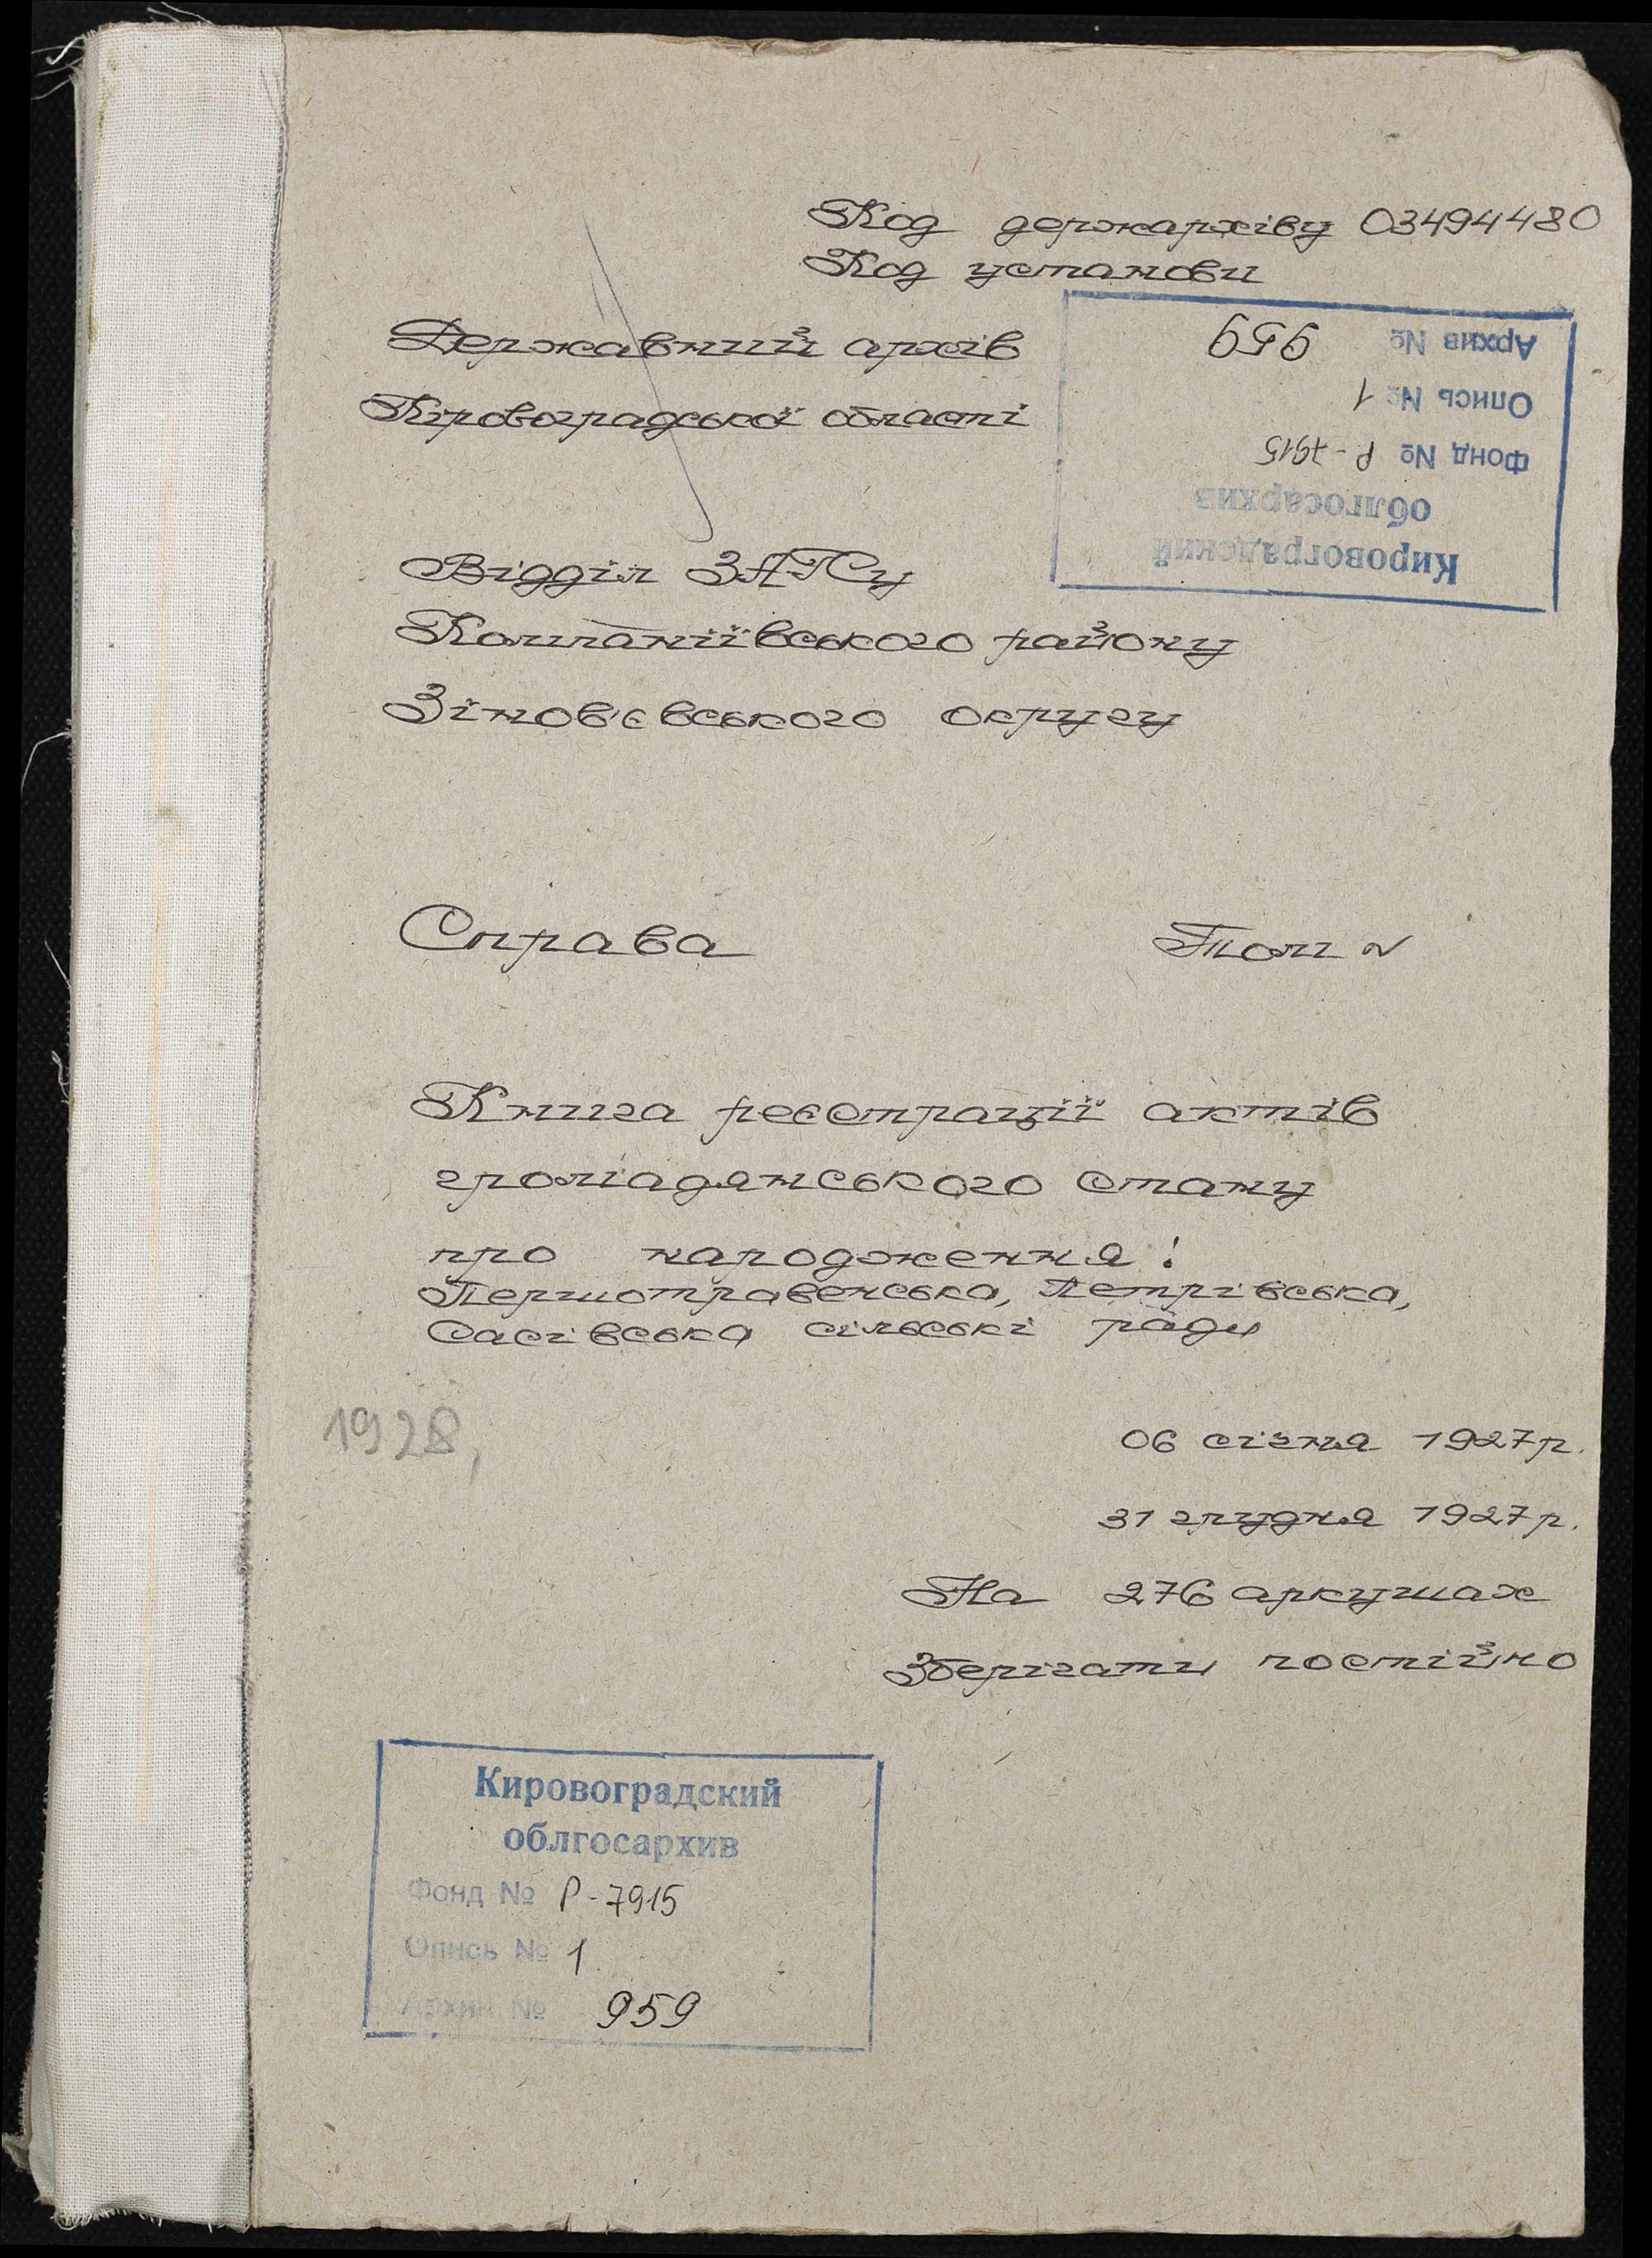 Код держархіву 03494480
Код установи
Державний архів
Кіровоградської області
Кировоградский
облгосархив
Фонд № Р-7915
Опись № 1
Архив № 959
Відділ ЗАГСу
Компаніївського району
Зінов'євського округу
Справа Том №
Книга реєстрації актів
громадянського стану
про народження:
Першотравенська, Петрівська,
Сасівська сільські ради
1928,
06 січня 1927р.
31 грудня 1927р.
На 276 аркушах
Зберігати постійно
Кировоградский
облгосархив
Фонд № Р-7915
Опись № 1
Архив № 959